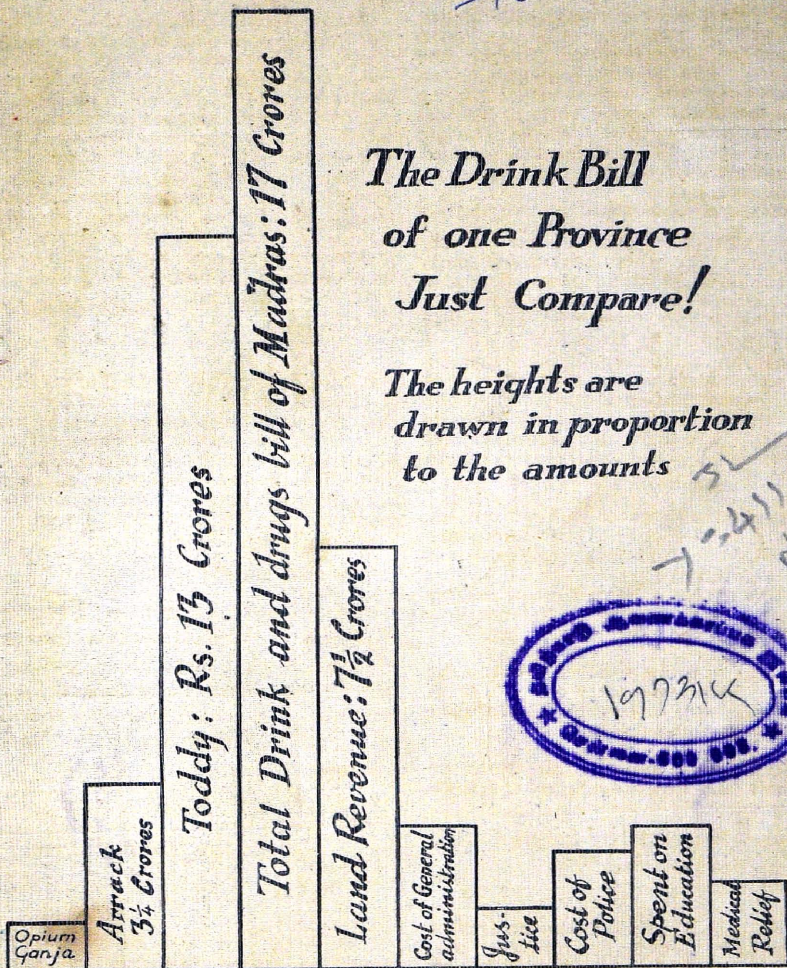 The Drink Bill
of one Province
Just Compare!
The heights are
drawn in proportion
to the amounts
Opium
Ganja
Arrack
3¼ Crores
Toddy: Rs. 13 Crores
Total Drink and drugs bill of Madras: 17 Crores
Land Revenue: 7½ Crores
Cost of General
administration
Jus-
tice
Cost of
Police
Spent on
Education
Medical
Relief